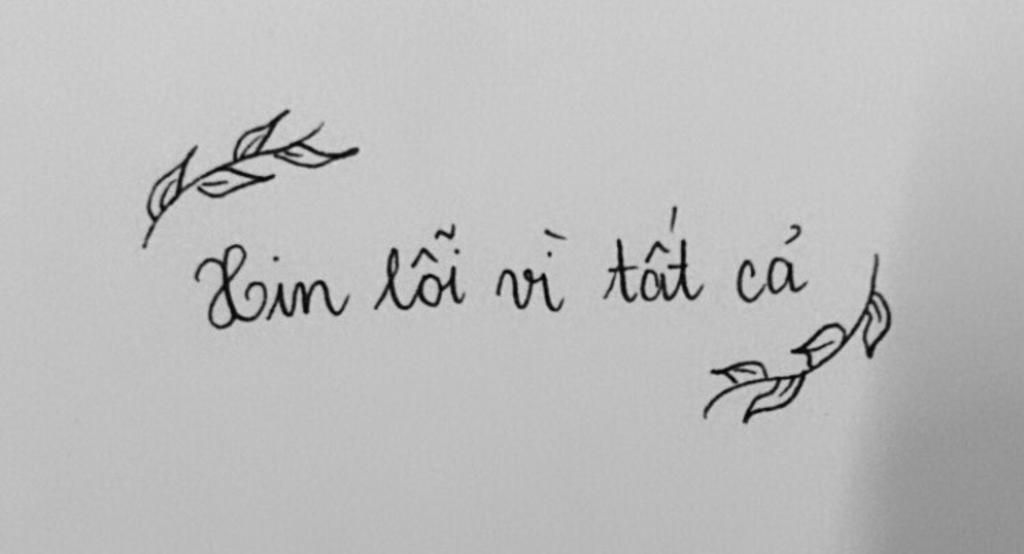 Xin lỗi vì tất cả